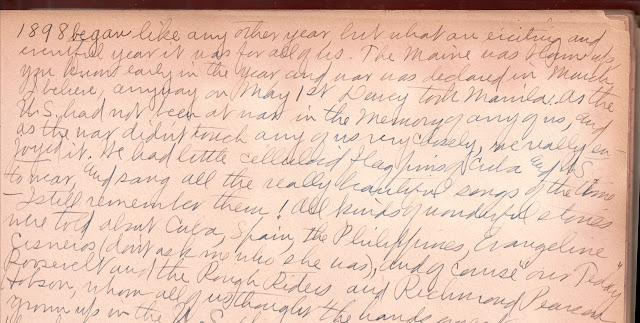 1898 began like any other year but what an exciting and
eventful year it was for all of us. The Maine was blown up,
you know early in the year and war was declared in March
I believe, anyway on May 1st Dewey took Manila. As the
U.S. had not been at war in the memory of any of us, and
as the war didn't touch any of us very closely, we really en-
joyed it. We had little celluloid flag pins of Cuba and U.S.
to wear, and sang all the really beautiful songs of the time
- I still remember them! All kinds of wonderful stories
were told about Cuba, Spain, the Philippines, Evangeline
Cisneros (don't ask me who she was), and of course "our Teddy"
Roosevelt and the Rough Riders and Richmond Pearson
Hobson, whom all of us thought the
grown ups in the U.S.